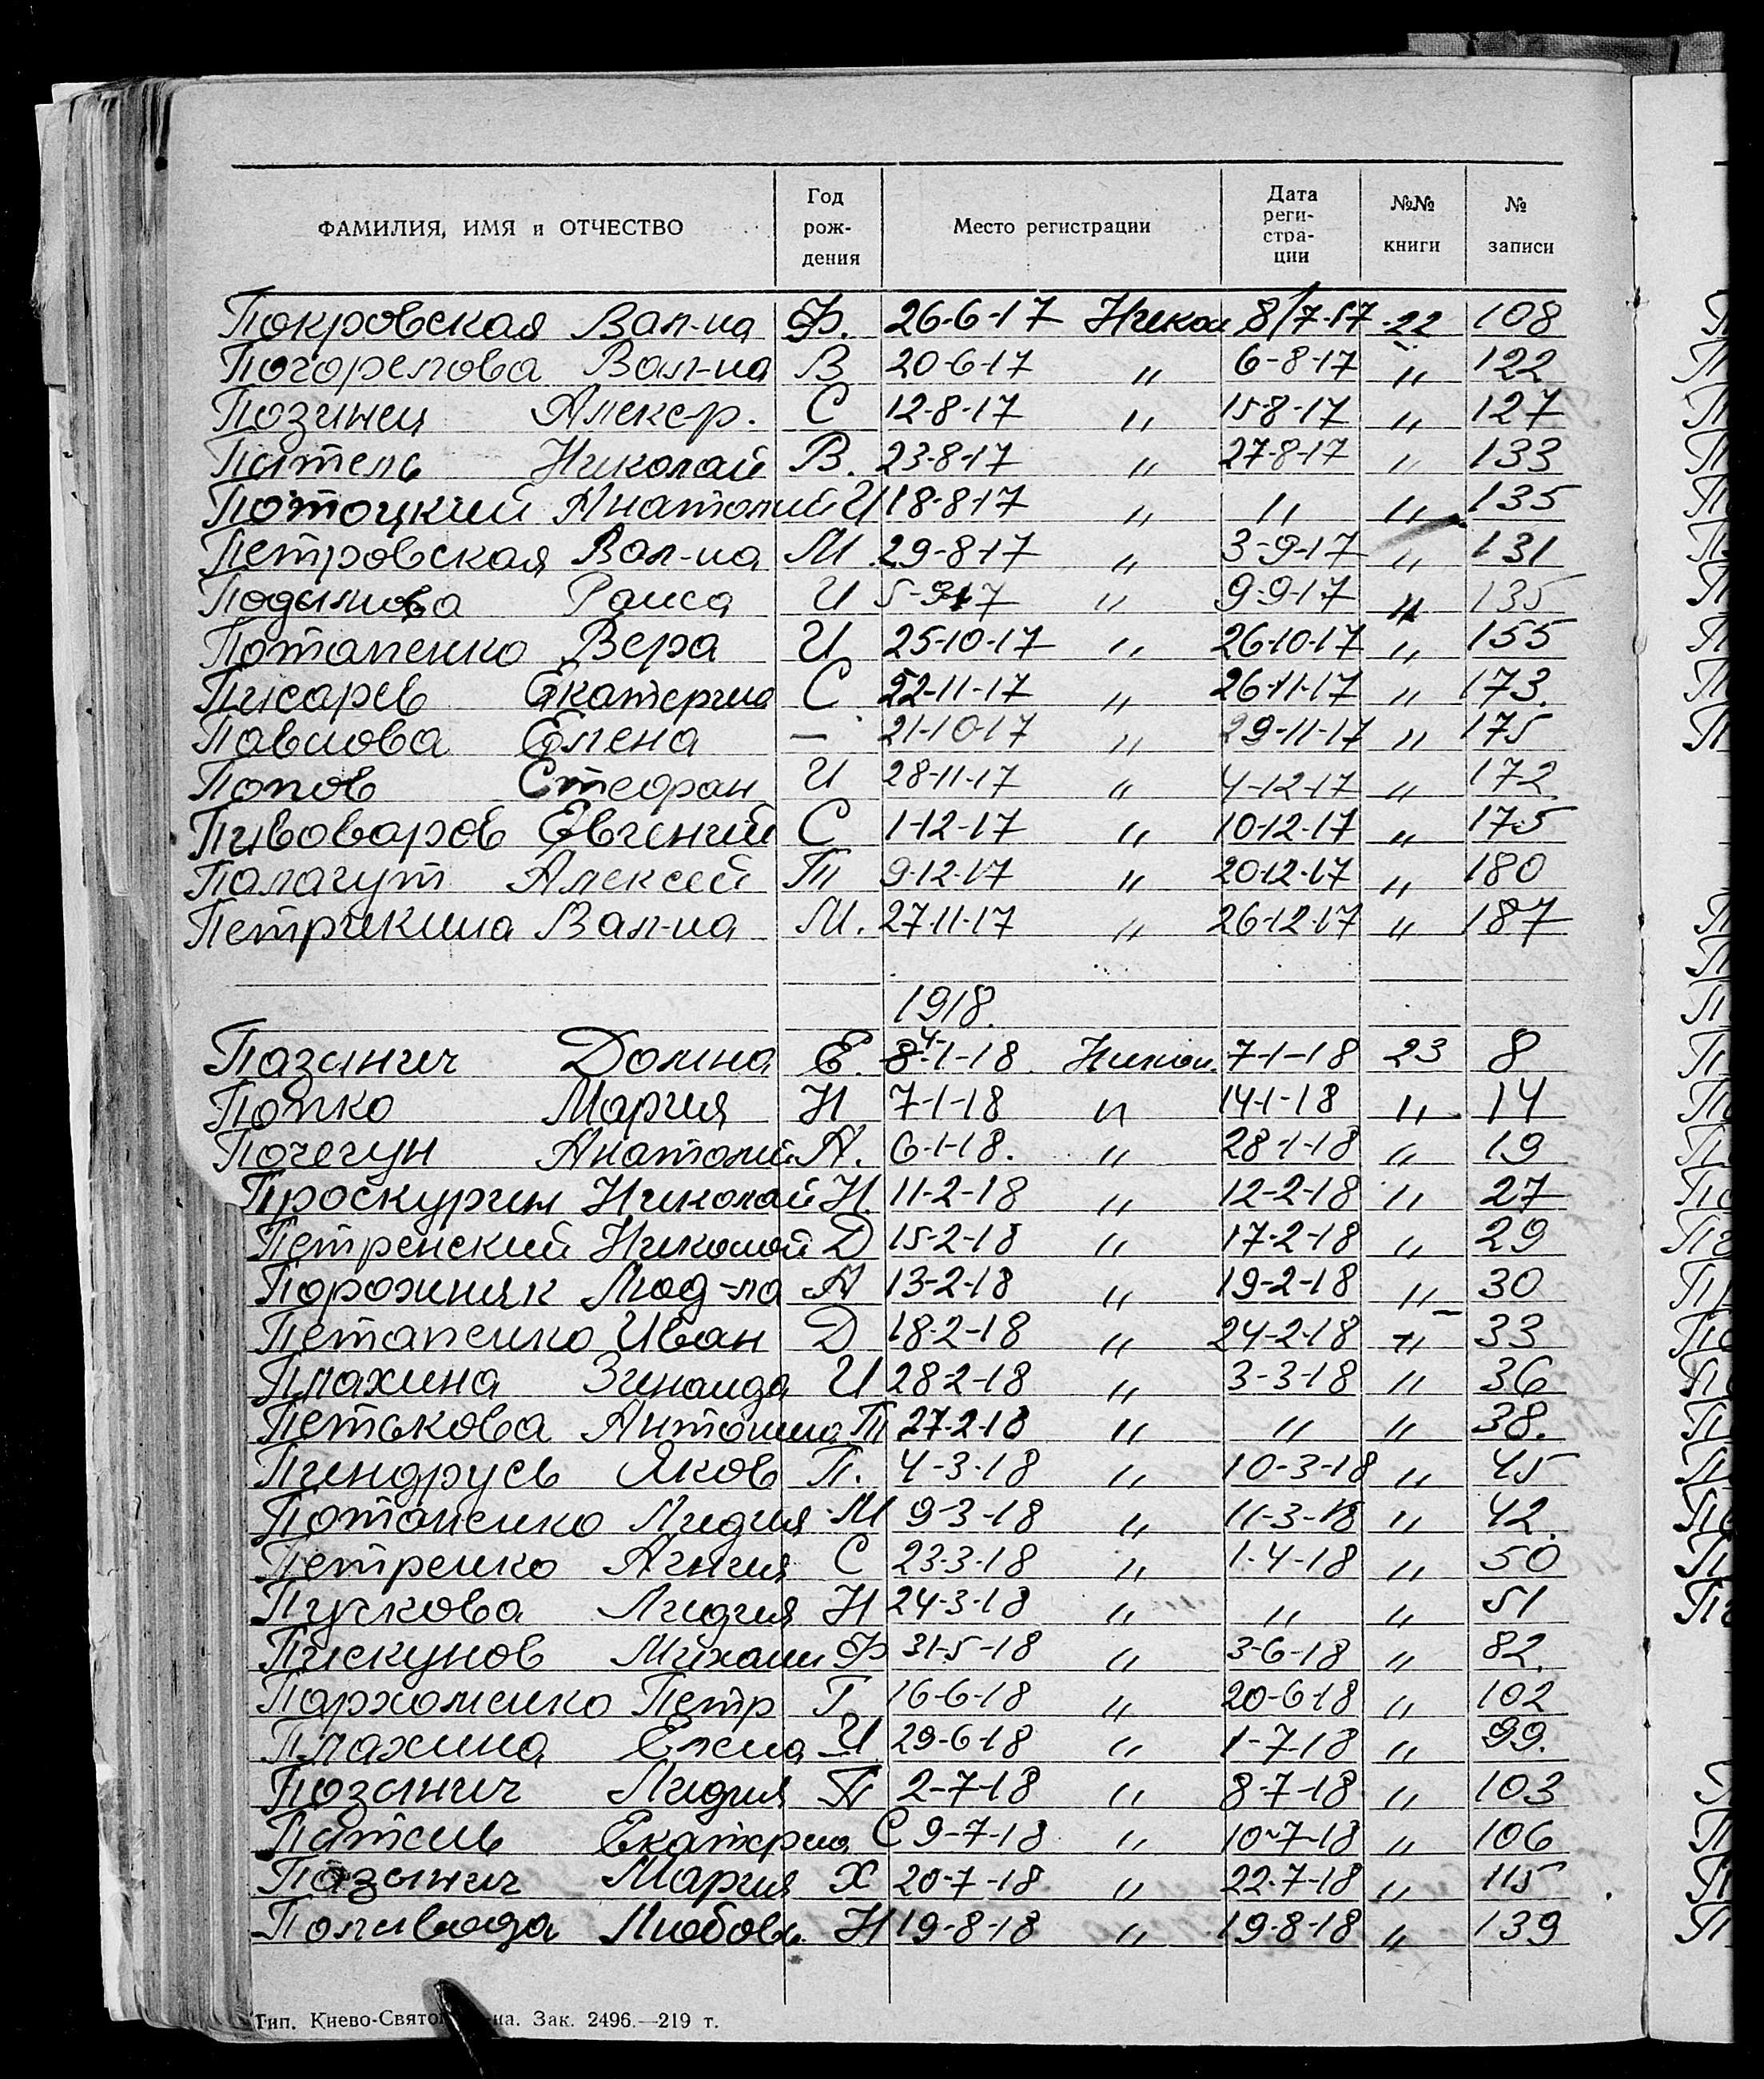 ФАМИЛИЯ, ИМЯ и ОТЧЕСТВО Год рож- дения Место регистрации Дата реги- стра- ции №№ книги № записи
Покровская Вал-на Ф. 26-6-17 Никол 8/7-17 22 108
Погорелова Вал-на В 20-6-17 " 6-8-17 " 122
Позинец Алекс-р. С 12-8-17 " 15-8-17 " 127
Патель Николай В. 23-8-17 " 27-8-17 " 133
Потоцкий Анатолий И 18-8-17 " " " 135
Петровская Вал-на М. 29-8-17 " 3-9-17 " 131
Подымова Раиса И 5-9-17 " 9-9-17 " 135
Потапенко Вера И 25-10-17 " 26-10-17 " 155
Писарев Екатерина С 22-11-17 " 26-11-17 " 173.
Павлова Елена — 21-10-17 " 29-11-17 " 175
Попов Стефан И 28-11-17 " 4-12-17 " 172
Пивоваров Евгений С 1-12-17 " 10-12-17 " 175
Палагут Алексей Т 9-12-17 " 20-12-17 " 180
Петрикина Вал-на М. 27-11-17 " 26-12-17 " 187
1918.
Пазынич Домна Е. 4-1-18 Никол. 7-1-18 23 8
Попко Мария Н 7-1-18 " 14-1-18 " 14
Почегун Анатолий А. 6-1-18. " 28-1-18 " 19
Проскурин Николай Н. 11-2-18 " 12-2-18 " 27
Петренский Николай Д 15-2-18 " 17-2-18 " 29
Порожняк Люд-ла А 13-2-18 " 19-2-18 " 30
Петапенко Иван Д 18-2-18 " 24-2-18 " 33
Плахина Зинаида И 28-2-18 " 3-3-18 " 36
Петькова Антонина Т 27-2-18 " " " 38.
Пиндрусь Яков П. 4-3-18 " 10-3-18 " 45
Потапенко Лидия М 9-3-18 " 11-3-18 " 42.
Петренко Агния С 23-3-18 " 1-4-18 " 50
Пускова Лидия Н 24-3-18 " " " 51
Пискунов Михаил Ф 31-5-18 " 3-6-18 " 82.
Пархоменко Петр Г 16-6-18 " 20-6-18 " 102
Плахина Елена И 29-6-18 " 1-7-18 " 99.
Позынич Лидия П 2-7-18 " 8-7-18 " 103
Патель Екатерина С 9-7-18 " 10-7-18 " 106
Пазынич Мария Х 20-7-18 " 22-7-18 " 115
Поливода Любовь Н 19-8-18 " 19-8-18 " 139
Тип. Киево-Свято на. Зак. 2496.—219 т.